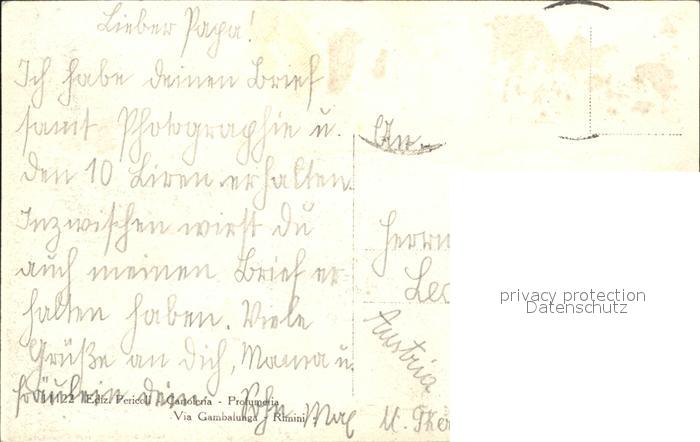 Lieber Papa!
Ich habe deinen Brief
samt Photographie u.
den 10 Liren erhalten.
Inzwischen wirst du
auch meinen Brief er-
halten haben. Viele
Grüße an dich, Mama u.
fräulein dein Sohn Max
11122 Ediz. Pericoli Cartoleria - Profumeria
Via Gambalunga - Rimini
An
Herrn
Leo
Austria
privacy protection
Datenschutz